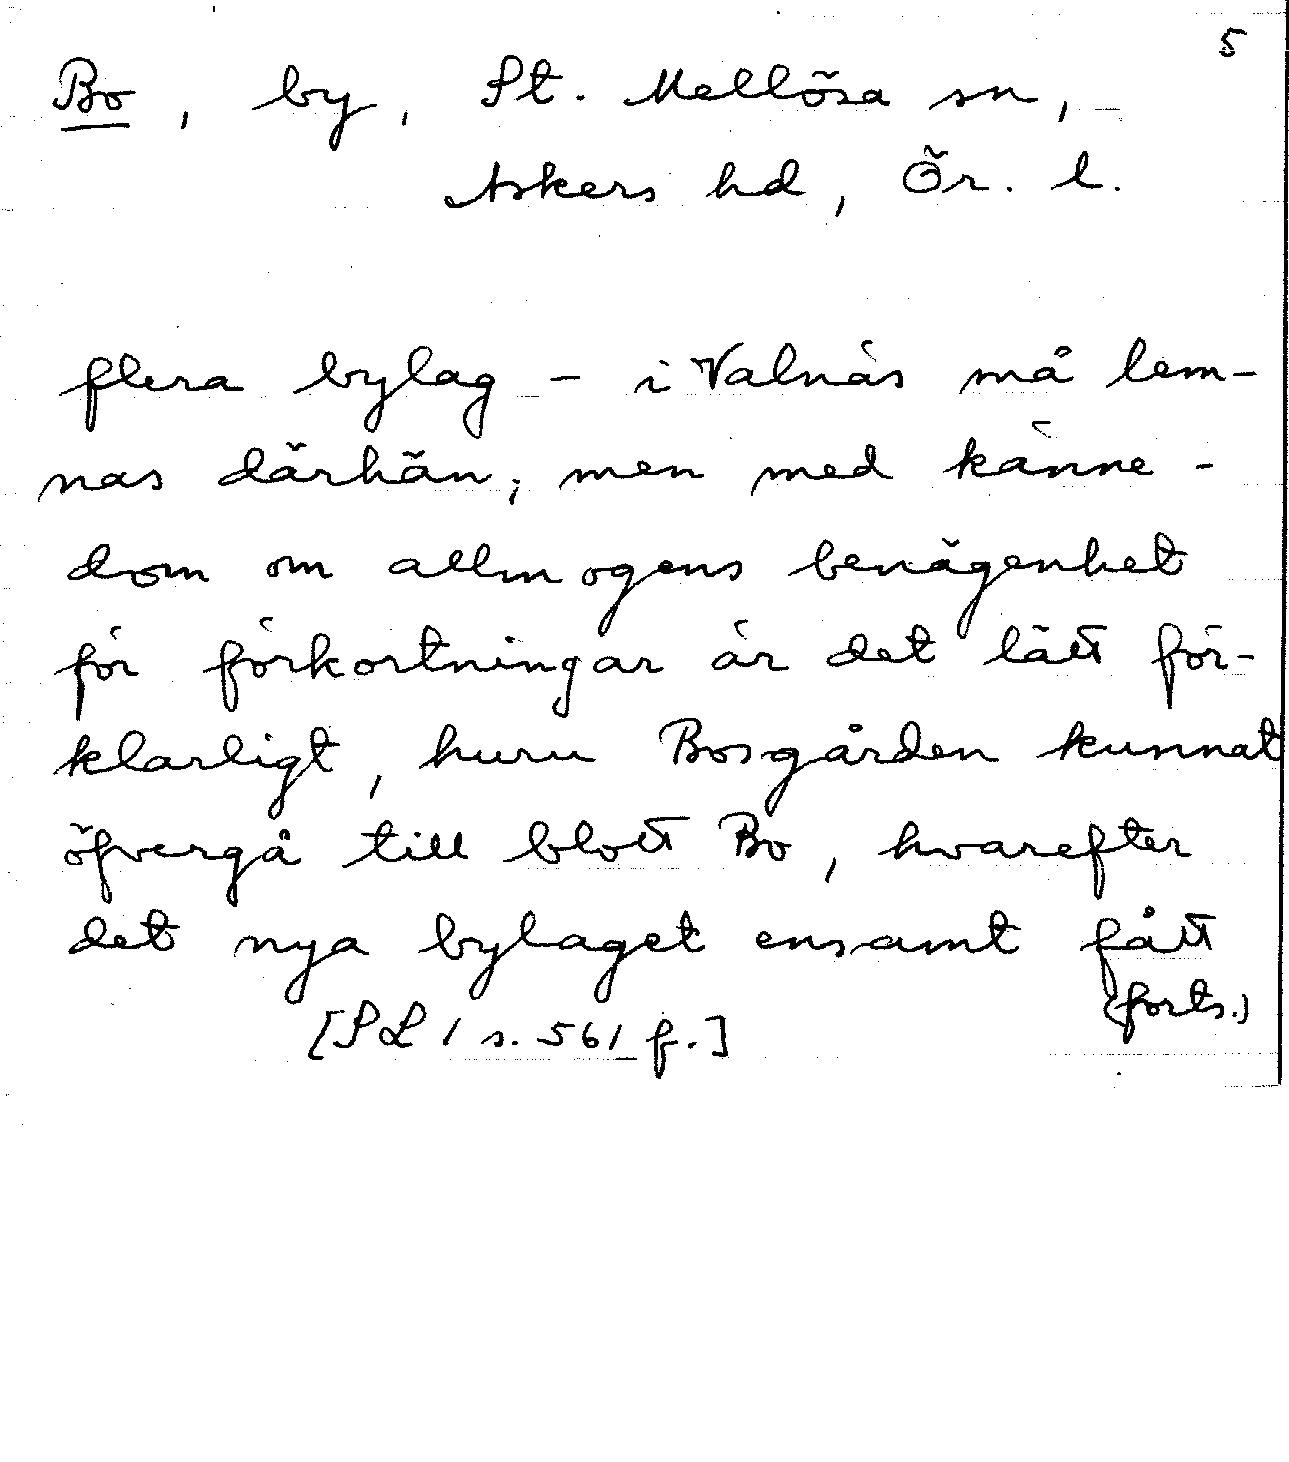 5
Bo, by, St. Mellösa sn,
Askers hd, Ör. l.
flera bylag - i Valnäs må lem-
nas därhän; men med känne-
dom om allmogens benägenhet
för förkortningar är det lätt för-
klarligt, huru Bosgården kunnat
öfvergå till blott Bo, hvarefter
det nya bylaget ensamt fått
(forts.)
[SL 1 s. 561 f.]